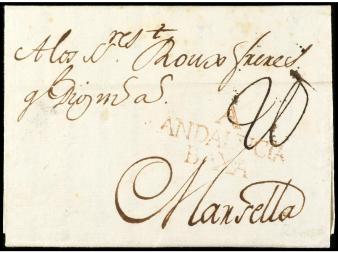 A los S.res Roux freres
20
A
ANDALUCIA
BAXA
Marsella